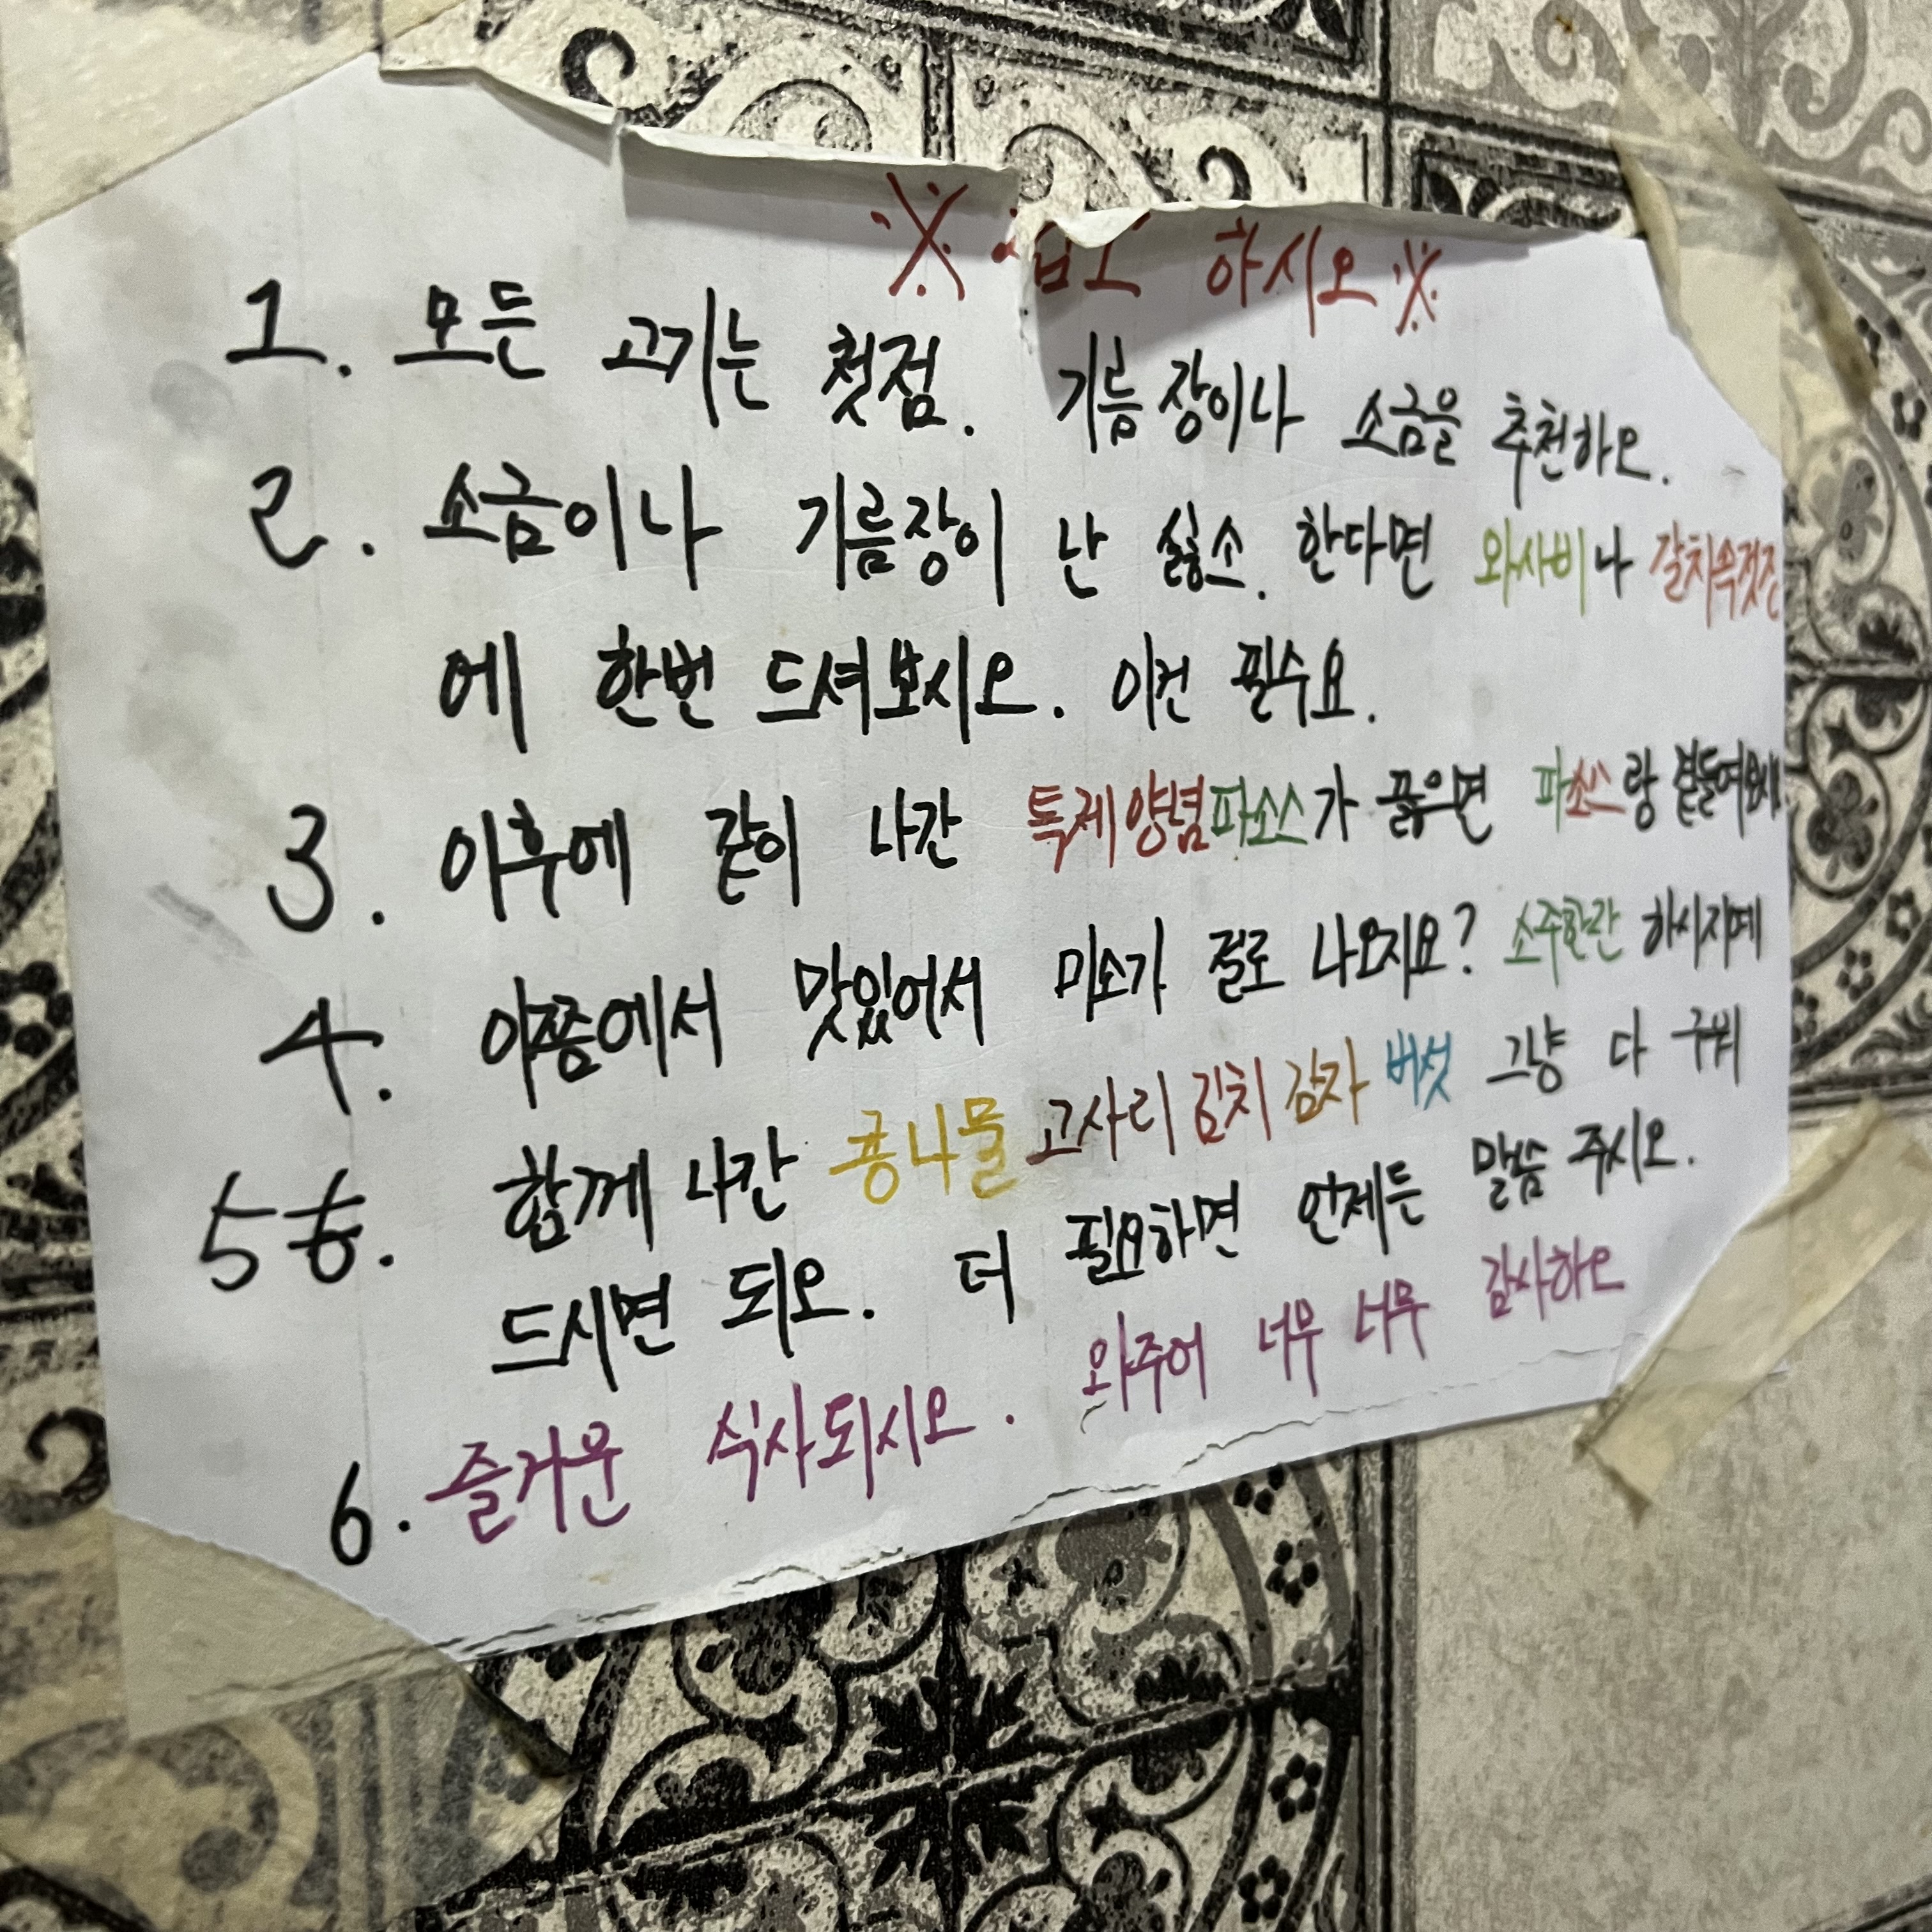 ※ 하시오 ※
1. 모든 고기는 첫점. 기름장이나 소금을 추천하오.
2. 소금이나 기름장이 난 싫소. 한다면 와사비나 갈치속젓
에 한번 드셔보시오. 이건 필수요.
3. 이후에 같이 나간 특제양념파소스가 끓으면 파소스랑 곁들여보세
4. 이쯤에서 맛있어서 미소가 절로 나오지요? 소주한잔 하시지예
5 6. 함께 나간 콩나물 고사리 김치 감자 버섯 그냥 다 구워
드시면 되오. 더 필요하면 언제든 말씀 주시오.
6. 즐거운 식사되시오. 와주어 너무 너무 감사하오